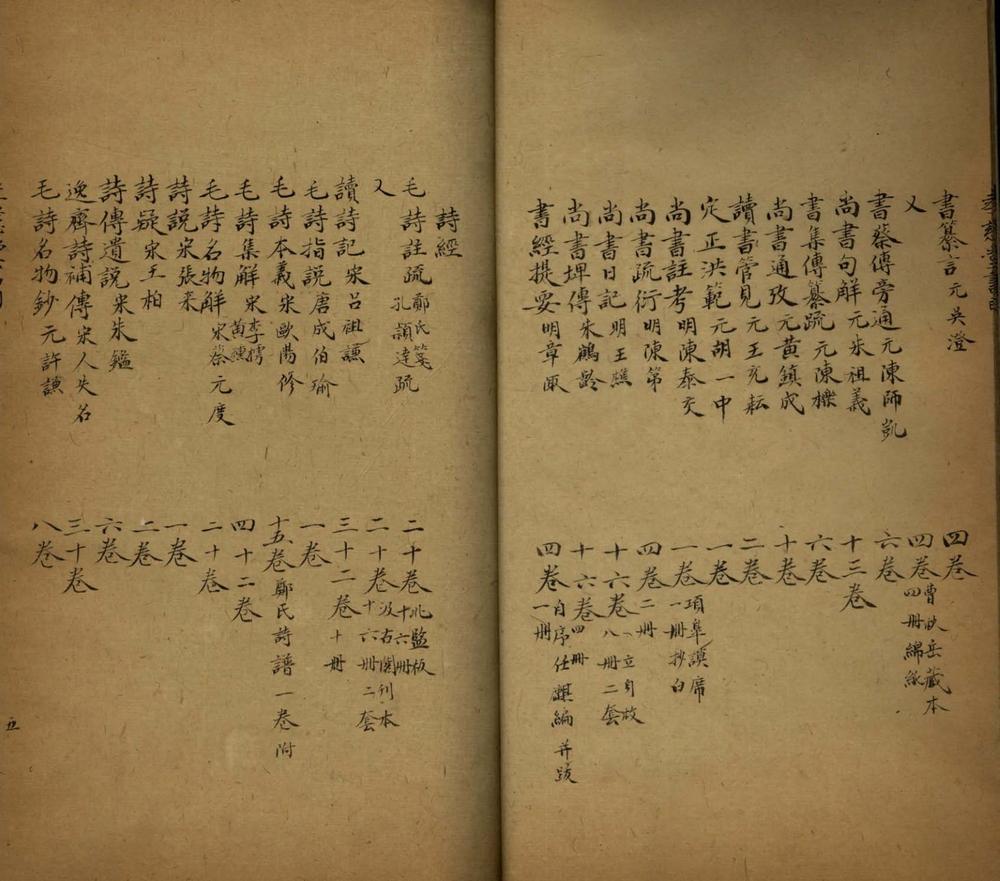 書纂言 元吳澄 四卷
又 四卷 曹秋岳藏本 四冊綿紙
書蔡傳旁通 元陳師凱 六卷
尚書句解 元朱祖義 十三卷
書集傳纂疏 元陳櫟 六卷
尚書通攷 元黃鎮成 十卷
讀書管見 元王充耘 二卷
定正洪範 元胡一中 一卷
尚書註考 明陳泰交 一卷 項臯謨席 一冊抄白
尚書疏衍 明陳第 四卷 二冊
尚書日記 明王樵 十六卷 八冊二套
尚書埤傳 朱鶴齡 十六卷 四冊
書經提要 明章陬 四卷 自序 編并跋 一冊
詩經
毛詩註疏 鄭氏箋 孔頴達疏 二十卷 北監板 十六冊
又 二十卷 汲古閣刊本 十六冊二套
讀詩記 宋呂祖謙 三十二卷 十冊
毛詩指說 唐成伯瑜 一卷
毛詩本義 宋歐陽修 十五卷 鄭氏詩譜一卷附
毛詩集解 宋李樗 黃櫄 四十二卷
毛詩名物解 宋蔡元度 二十卷
詩説 宋張耒 一卷
詩疑 宋王柏 二卷
詩傳遺説 宋朱鑑 六卷
逸齋詩補傳 宋人失名 三十卷
毛詩名物鈔 元許謙 八卷
五